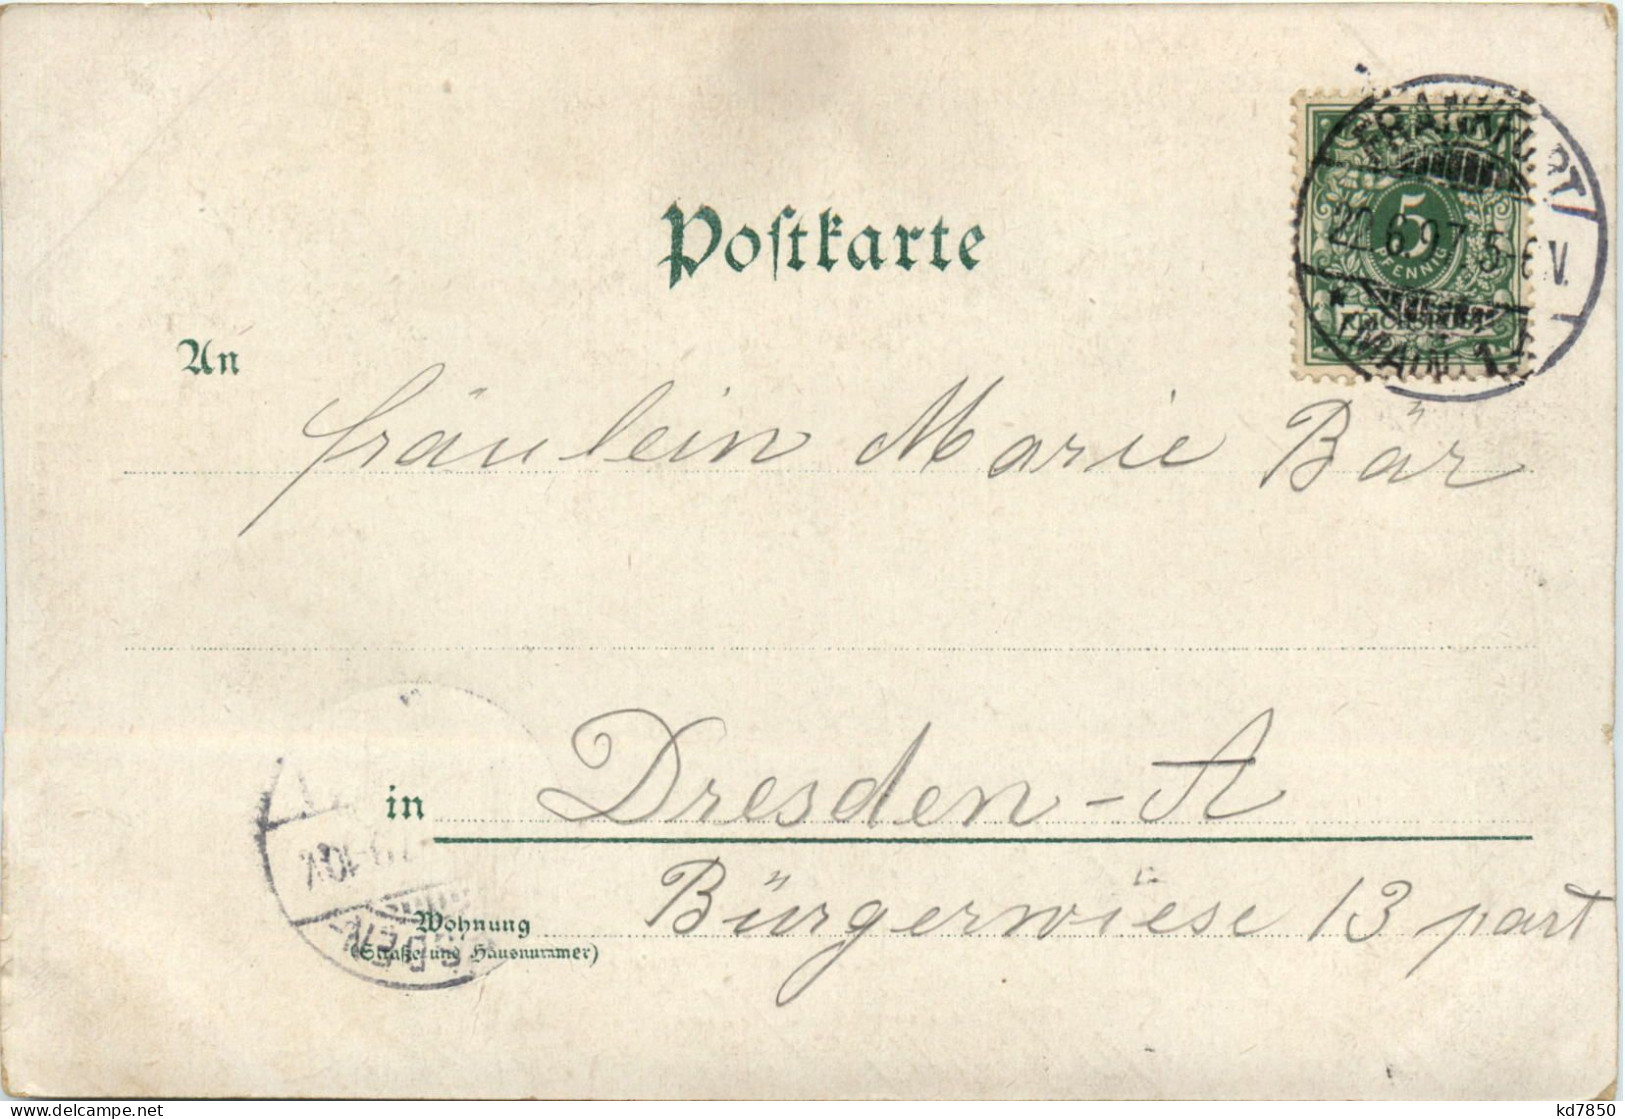 Postkarte
FRANKFURT
22.6.97. 5-6 V.
5
PFENNIG
REICHSPOST
* (MAIN) 1
An
Fräulein Marie Bär
in Dresden-A
Bürgerwiese 13 part
Wohnung
(Straße und Hausnummer)
delcampe.net
kd7850